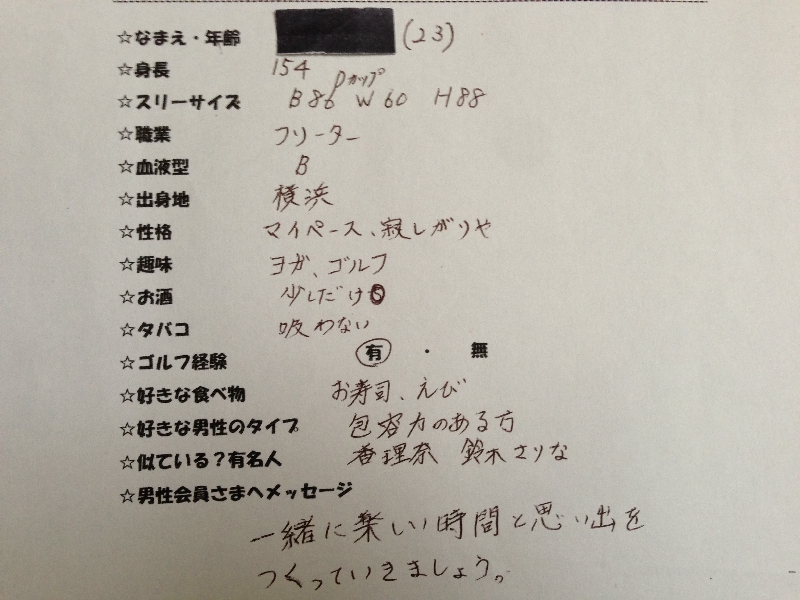 ☆なまえ・年齢 (23)
☆身長 154
Dカップ
☆スリーサイズ B86 W60 H88
☆職業 フリーター
☆血液型 B
☆出身地 横浜
☆性格 マイペース、寂しがりや
☆趣味 ヨガ、ゴルフ
☆お酒 少しだけ
☆タバコ 吸わない
☆ゴルフ経験 有 ・ 無
☆好きな食べ物 お寿司、えび
☆好きな男性のタイプ 包容力のある方
☆似ている？有名人 香理奈 鈴木さりな
☆男性会員さまへメッセージ
一緒に楽しい時間と思い出を
つくっていきましょう。